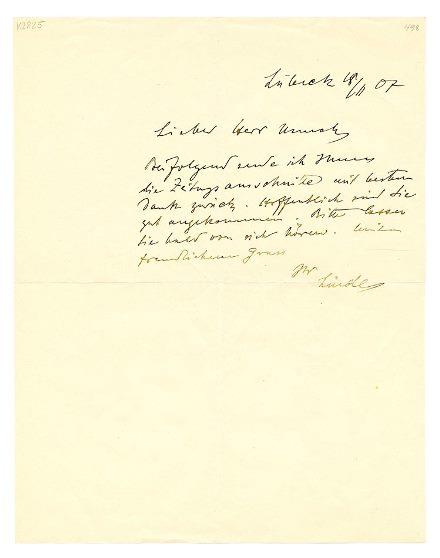 K2825
498
Lübeck 18/II 07
Lieber Herr Munch,
Beifolgend sende ich Ihnen
die Zeitungsausschnitte mit bestem
Dank zurück. Hoffentlich sind Sie
gut angekommen. Bitte lassen
Sie bald von sich hören. Mit
freundlichem Gruss
Ihr
Linde